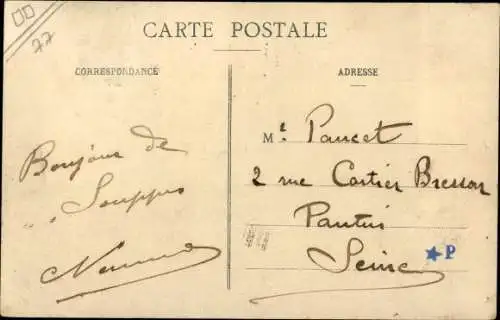 77
CARTE POSTALE
CORRESPONDANCE
ADRESSE
Bonjour de
" Souppes
Mr. Paucet
2 rue Cartier Bresson
Pantin
Seine
★P